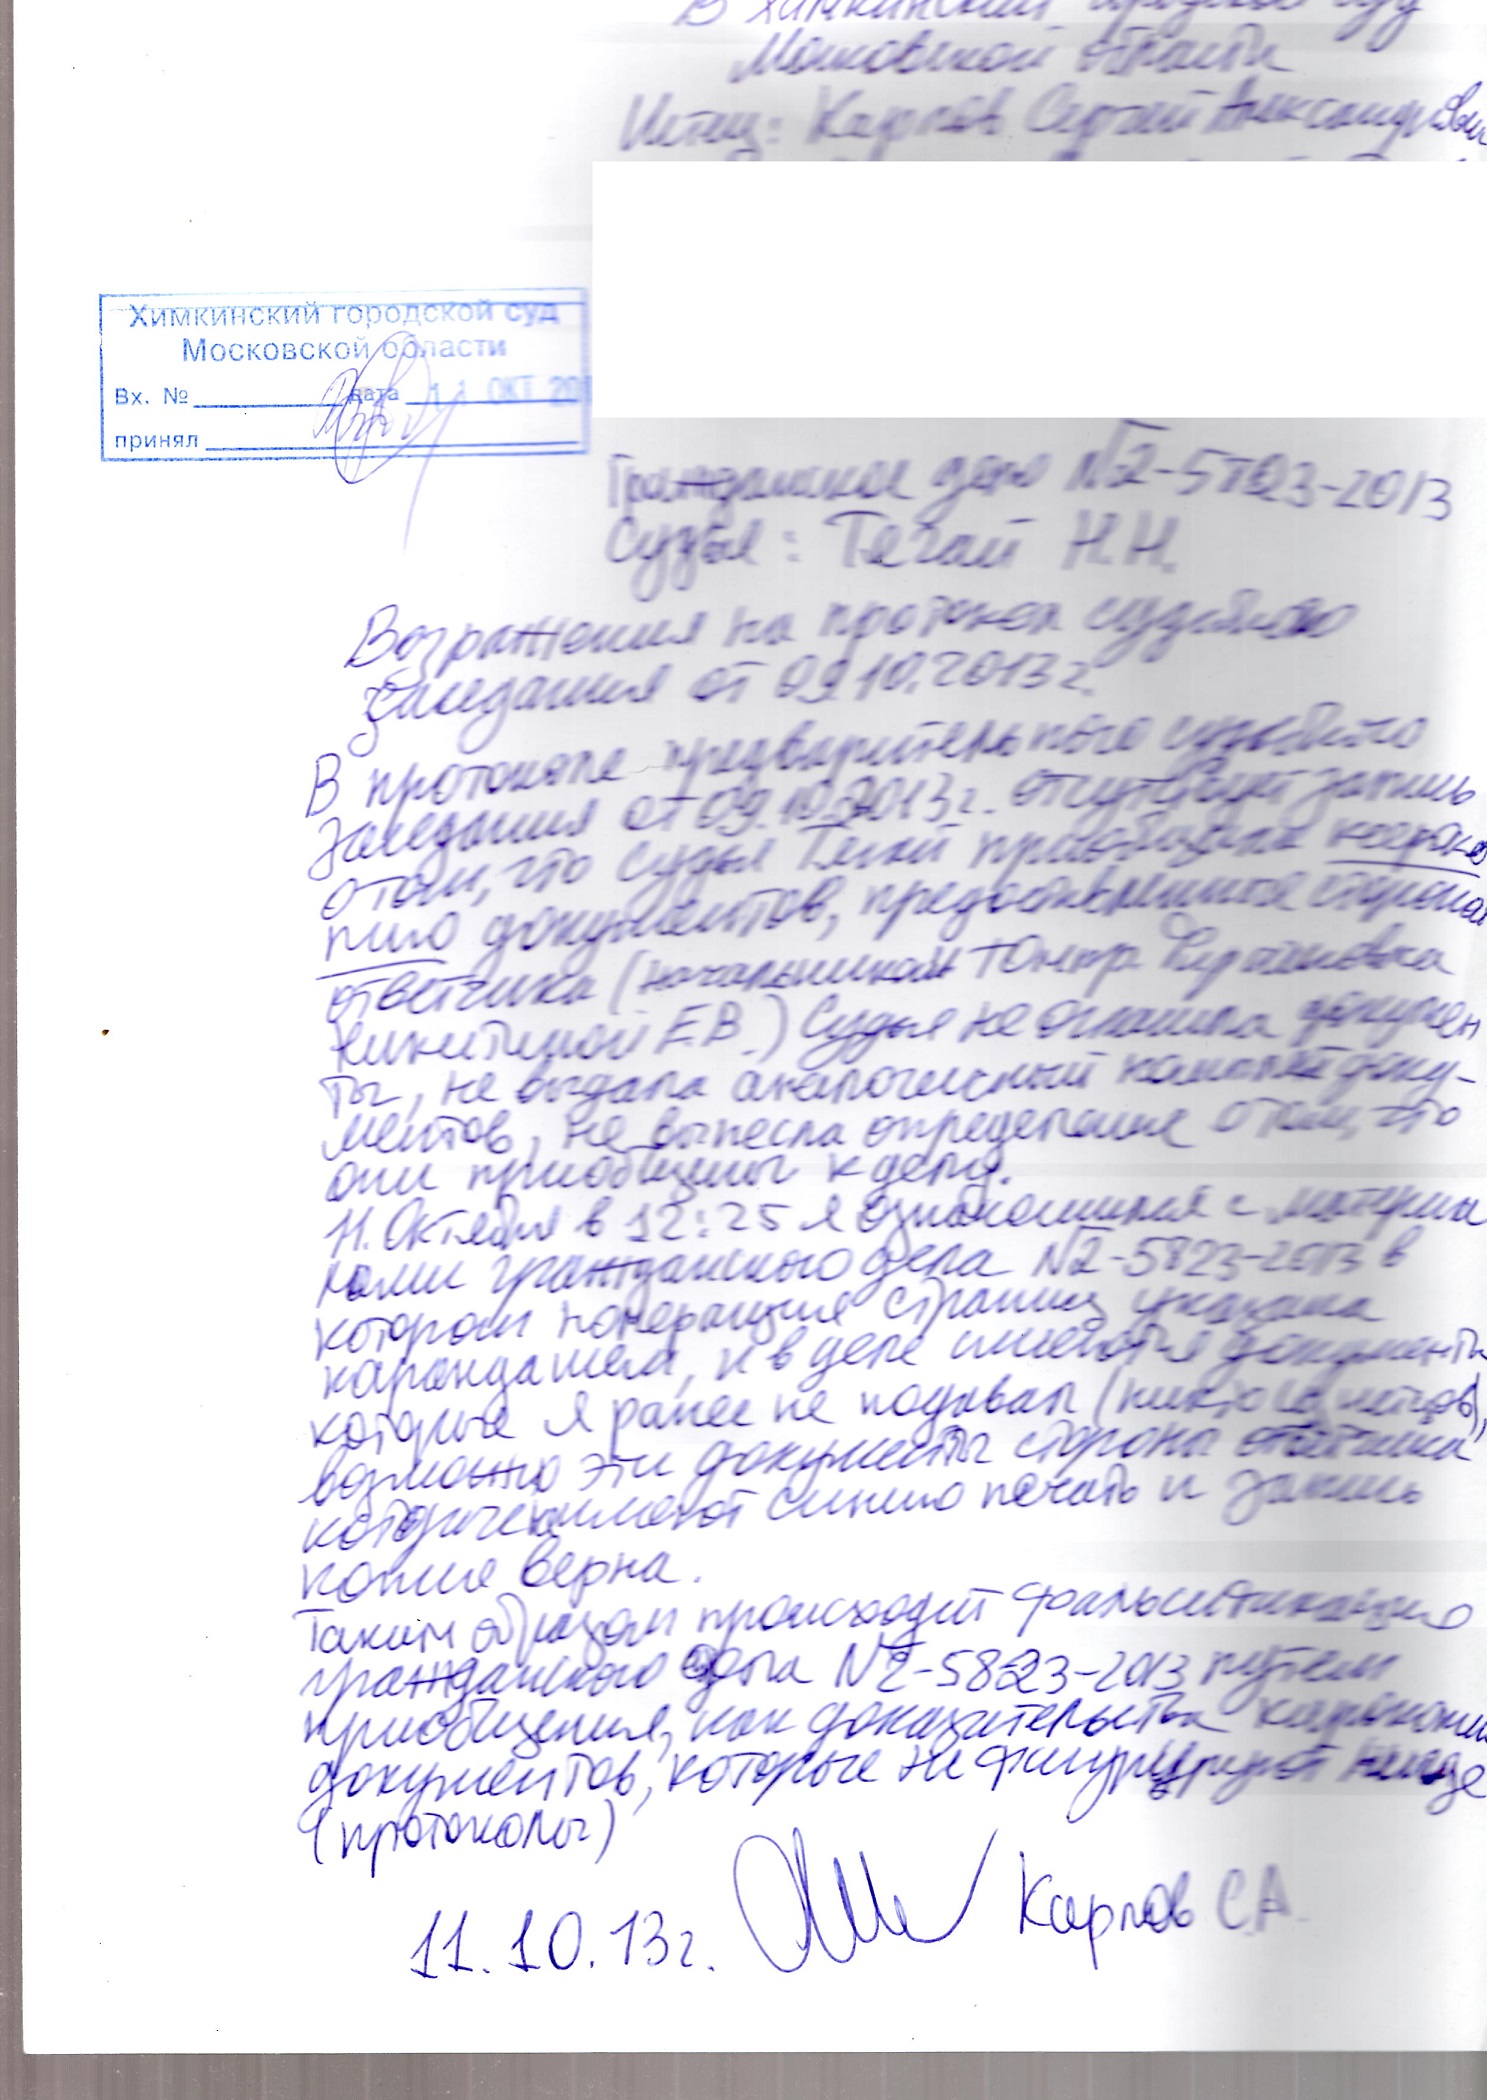 В Химкинский городской суд
Московской области
Истец: Карпов Сергей Александрович
Химкинский городской суд
Московской области
Вх. № дата 11 ОКТ 20
принял
Гражданское дело №2-5823-2013
Судья: Тягай Н.Н.
Возражения на протокол судебного
заседания от 09.10.2013г.
В протоколе предварительного судебного
заседания от 09.10.2013г. отсутствует запись
о том, что судья Тягай приобщила ксероко
пию документов, предоставленные стороной
ответчика (начальником
Никитиной Е.В.) Судья не огласила докумен
ты, не выдала аналогичный комплект доку-
ментов, не вынесла определение о том, что
они приобщены к делу.
11. Октября в 12:25 я ознакомился с материа
лами гражданского дела №2-5823-2013 в
котором нумерация страниц указана
карандашом, и в деле имеются документы
которые я ранее не подавал (никто из истцов),
возможно эти документы стороны ответчика
которые имеют синию печать и запись
копия верна.
Таким образом происходит фальсификация
гражданского дела №2-5823-2013 путем
приобщения, как доказательства ксерокопии
документов, которые не фигурируют нигде
(протоколы)
11.10.13г. Карпов С.А.